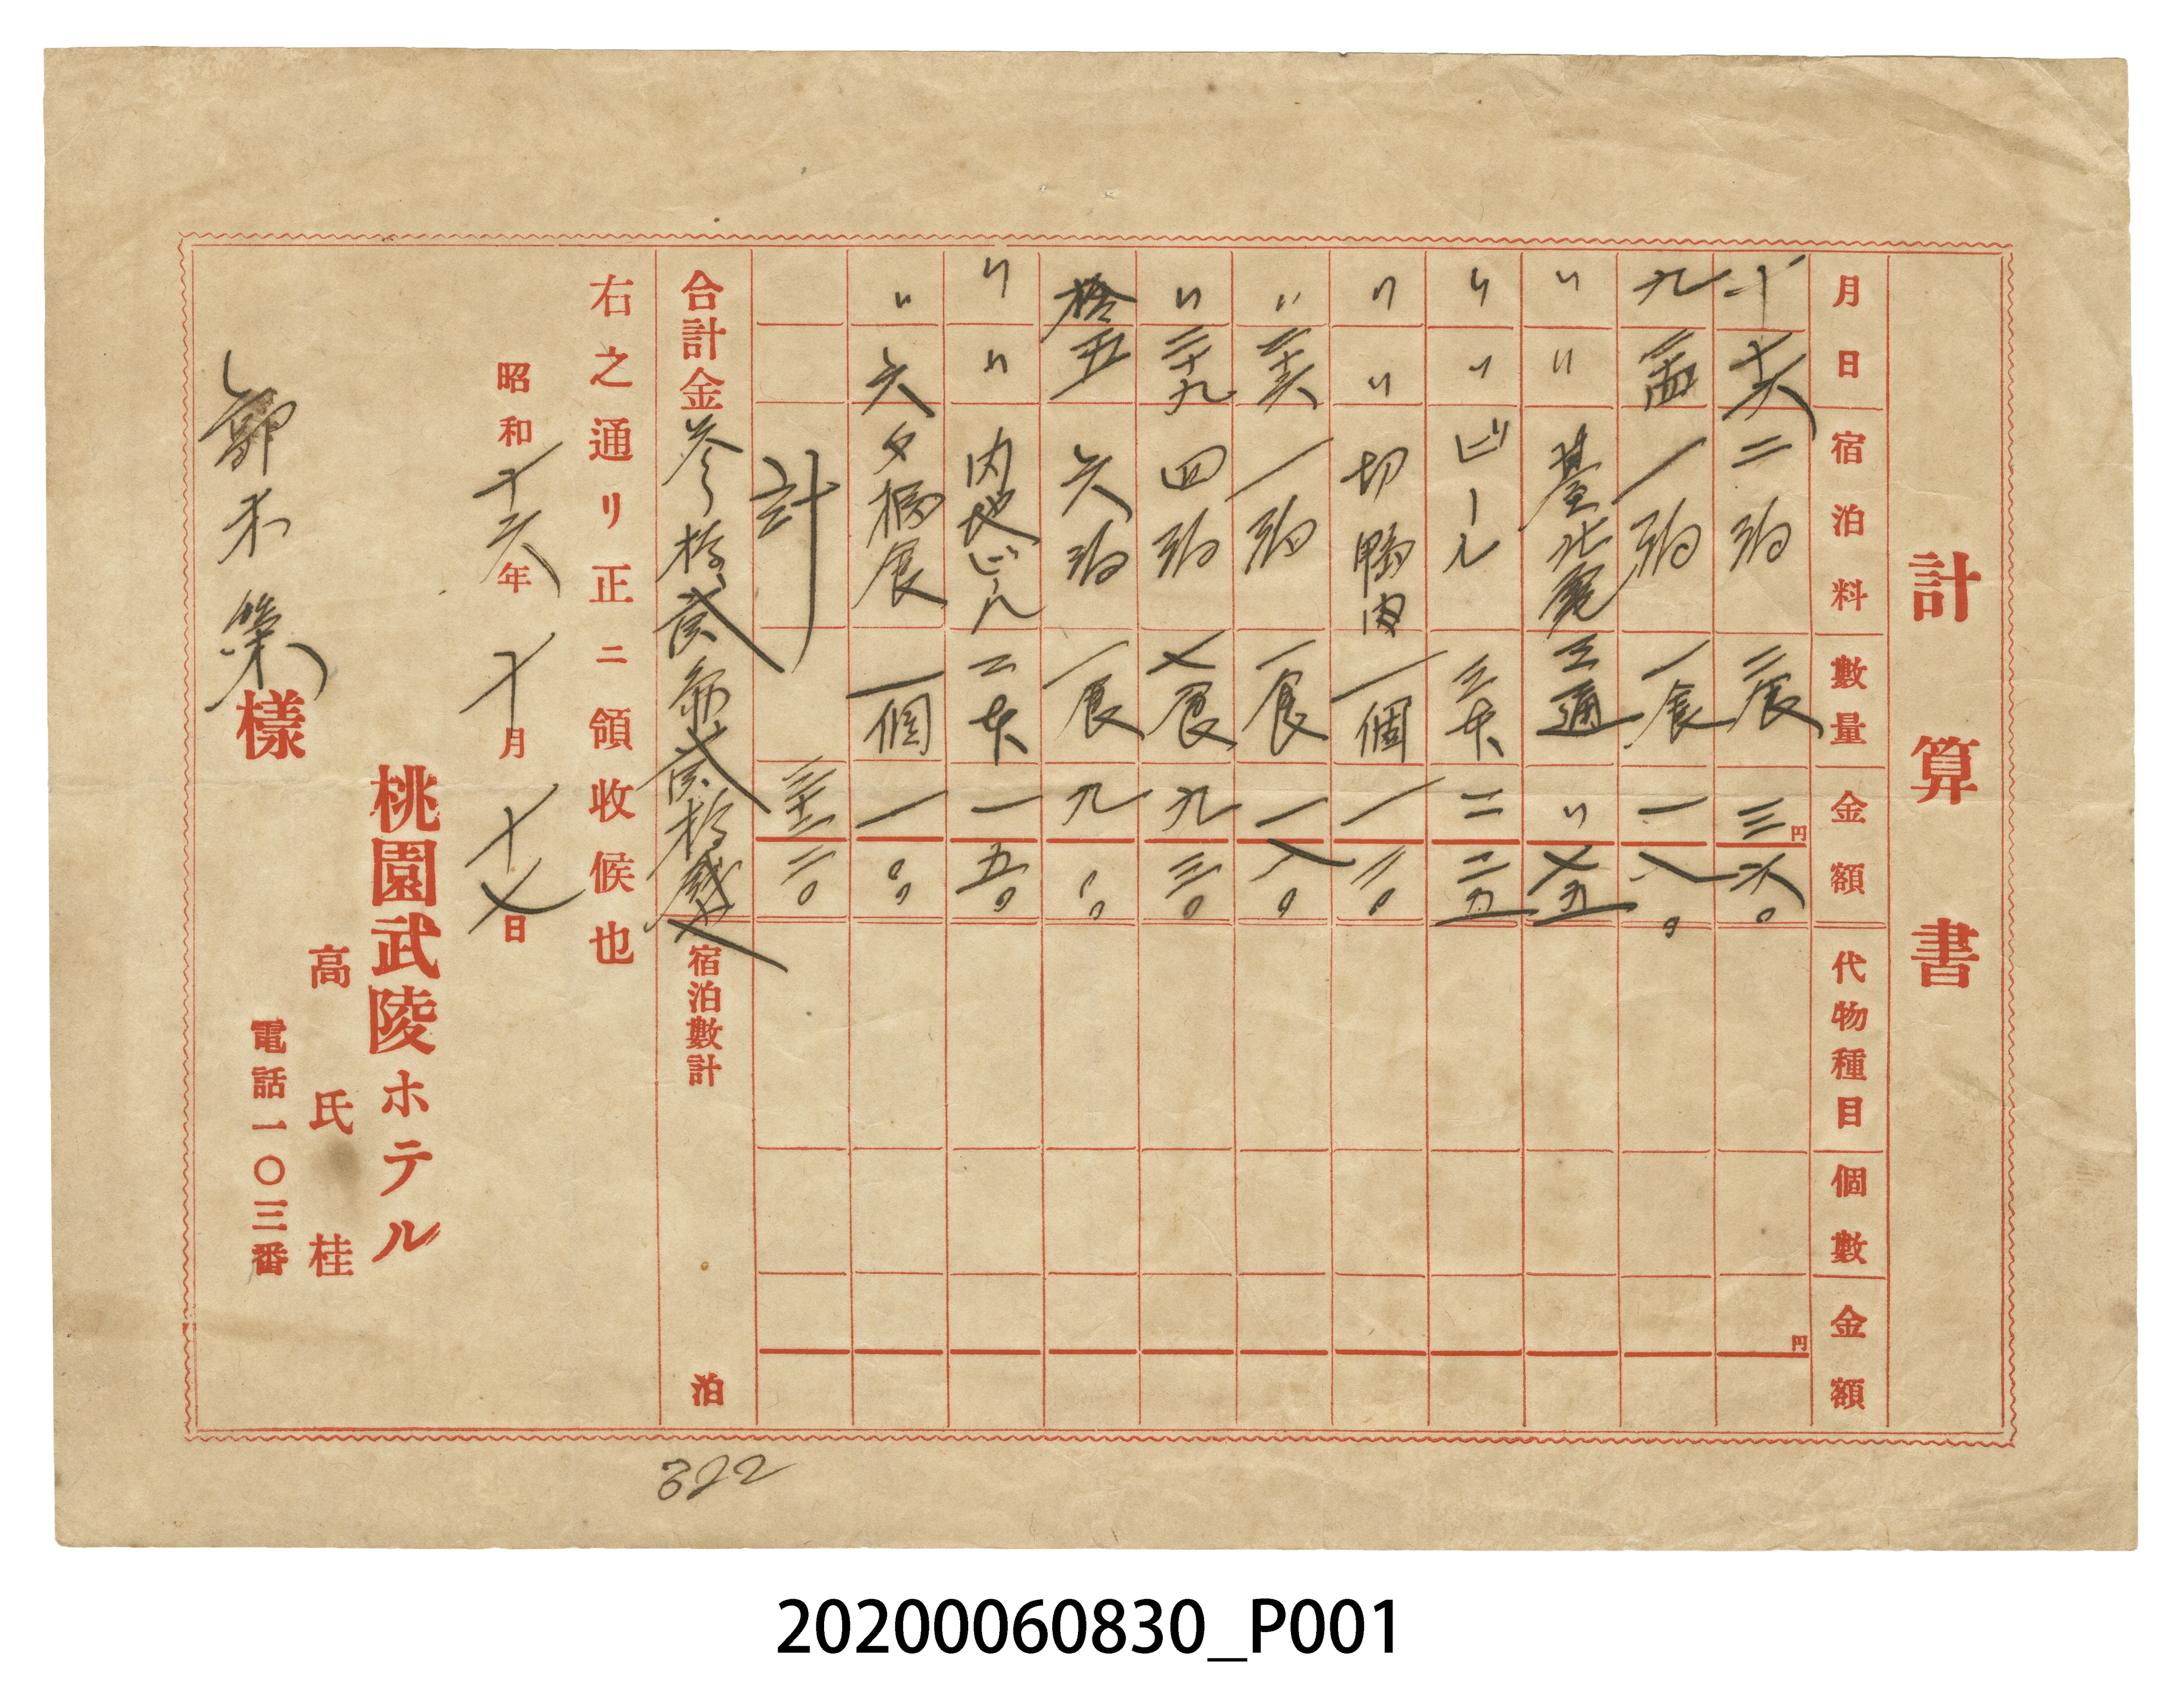 計算書
月日 宿泊料 數量 金額 代物種目 個數 金額
十六 二泊 二食 三円 六〇 円
九 二十四 一泊 一食 一 八〇
〃 〃 基北電 三通 〃 七五
〃 〃 ビール 三本 二 二五
〃 〃 切鴨肉 一個 一 二〇
〃 二十六 一泊 一食 一 八〇
〃 二十九 四泊 七食 九 三〇
拾 五 六泊 一食 九 〇〇
〃 〃 内地ビール 二本 一 五〇
〃 六 夕 食 一個 一 〇〇
計 三十二 二〇
合計金 参拾貳円貳拾錢 宿泊數計 泊
右之通リ正ニ領收候也
昭和十六年十月十七日
桃園武陵ホテル
高氏桂
電話一〇三番
郭 樣
322
20200060830_P001